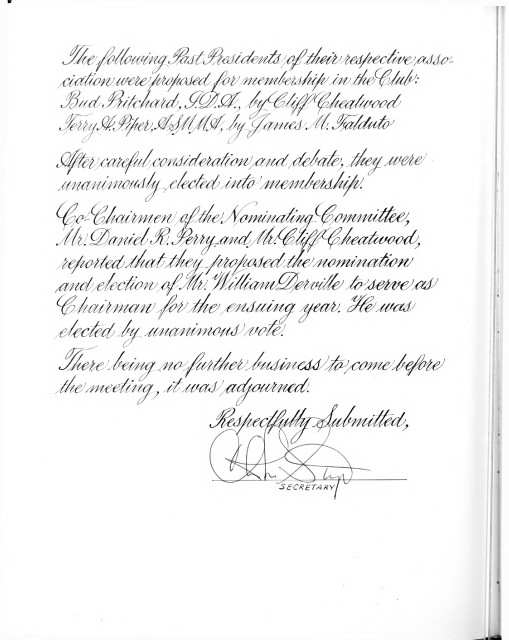 The following Past Presidents of their respective asso-
ciation were proposed for membership in the Club:
Bud Pritchard, S.D.A., by Cliff Cheatwood
Terry A. Piper, A.S.M.M.A., by James M. Falduto
After careful consideration and debate, they were
unanimously elected into membership.
Co-Chairmen of the Nominating Committee,
Mr. Daniel R. Perry and Mr. Cliff Cheatwood,
reported that they proposed the nomination
and election of Mr. William Derville to serve as
Chairman for the ensuing year. He was
elected by unanimous vote.
There being no further business to come before
the meeting, it was adjourned.
Respectfully Submitted,
SECRETARY